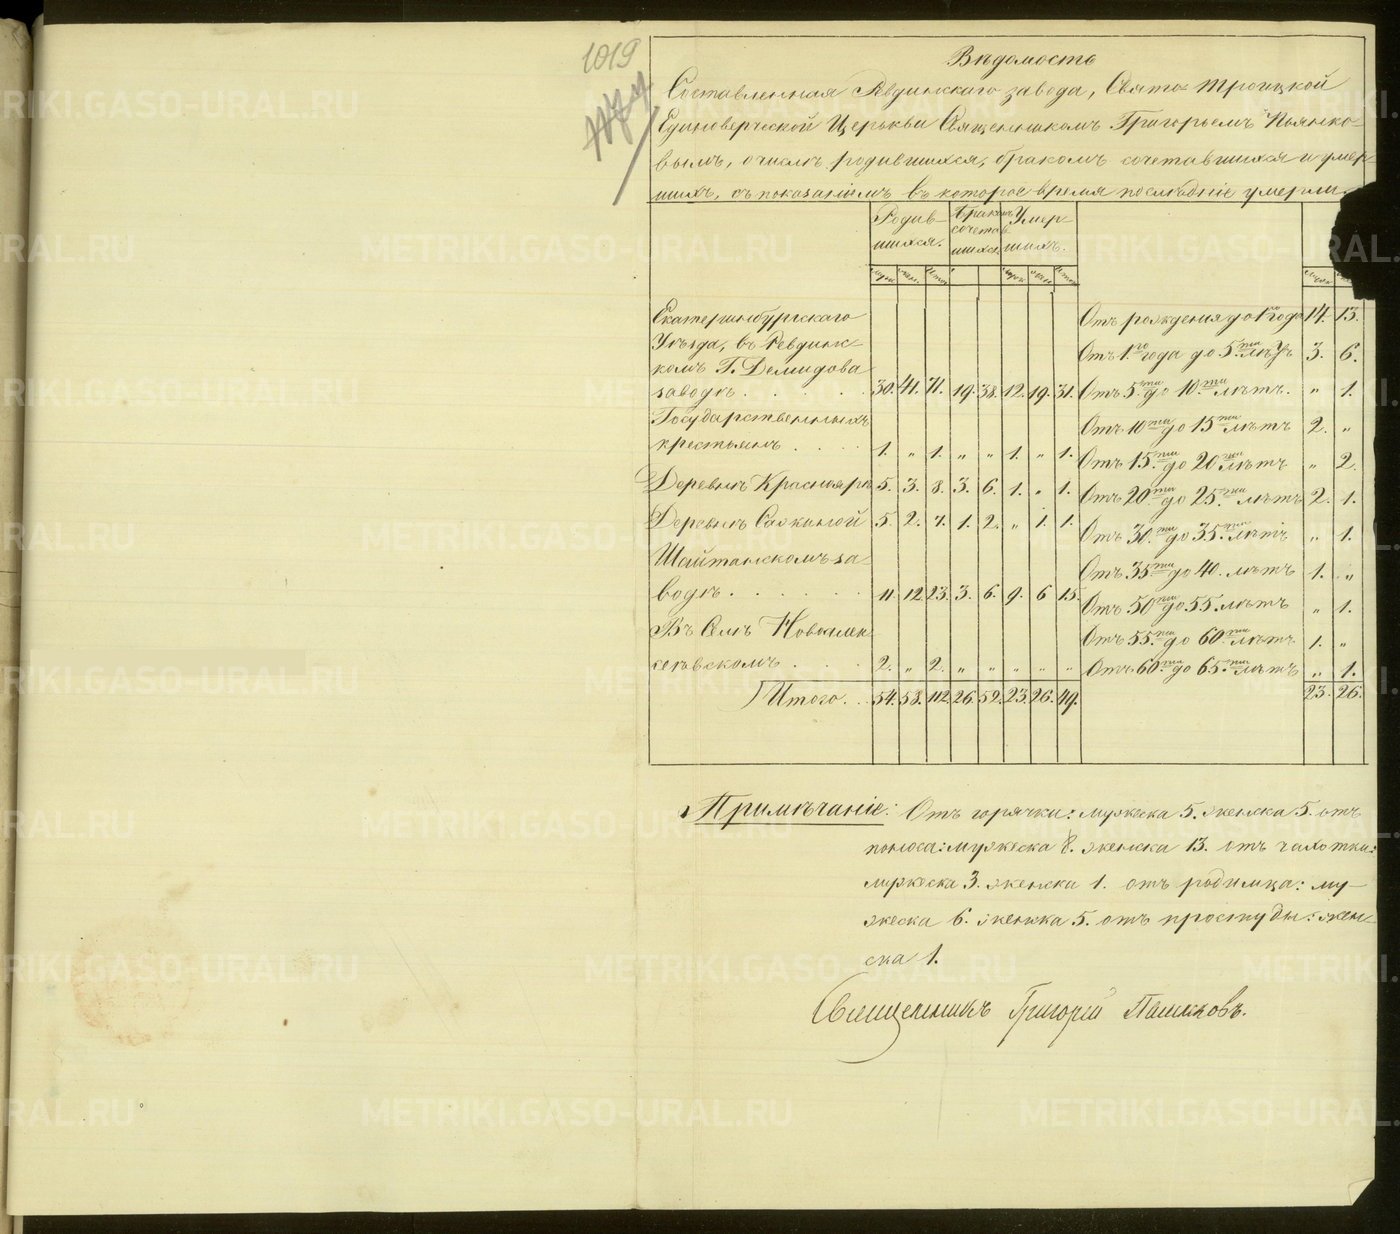 1019
Вѣдомость
Составленная Ревдинскаго завода, Свято-Троицкой
Единоверческой Церькви Священникомъ Григорьемъ
вымъ, о числѣ родившихся, бракомъ сочетавшихся и умер-
шихъ, съ показаніемъ въ которое время последніе умерли.
Родив- Бракомъ Умер-
шихся. сочетав- шихъ.
шихся.
муж. жен. Итог. муж. жен. Итог. муж.
Екатеринбургскаго Отъ рожденія до 1го года 14. 13.
Уѣзда, въ Ревдинс- Отъ 1го года до 5ти лѣтъ 3. 6.
комъ Г. Демидова
заводѣ . . . . . 30. 41. 71. 19. 38. 12. 19. 31. Отъ 5ти до 10ти лѣтъ. „ 1.
Государственныхъ Отъ 10ти до 15ти лѣтъ 2. „
крестьянъ . . . . 1. „ 1. „ „ 1. „ 1. Отъ 15ти до 20ти лѣтъ „ 2.
Деревнѣ Краснояръ 5. 3. 8. 3. 6. 1. „ 1. Отъ 20ти до 25ти лѣтъ 2. 1.
Деревнѣ 5. 2. 7. 1. 2. „ 1. 1. Отъ 30ти до 35ти лѣтъ „ 1.
Шайтанскомъ за- Отъ 35ти до 40. лѣтъ 1. „
водѣ . . . . . . 11. 12. 23. 3. 6. 9. 6 15. Отъ 50ти до 55. лѣтъ „ 1.
Въ Селѣ Новоалек- Отъ 55ти до 60ти лѣтъ 1. „
сеѣвскомъ . . . 2. „ 2. „ „ „ „ „ Отъ 60ти до 65ти лѣтъ „ 1.
Итого . . 54. 58. 112. 26. 52. 23. 26. 49. 23. 26.
Примѣчаніе: Отъ горячки: мужеска 5. женска 5. отъ
поноса: мужеска 8. женска 13. отъ чахотки:
мужеска 3. женска 1. отъ родимца: му-
жеска 6. женска 5. отъ простуды: жен-
ска 1.
Священникъ Григорій
METRIKI.GASO-URAL.RU